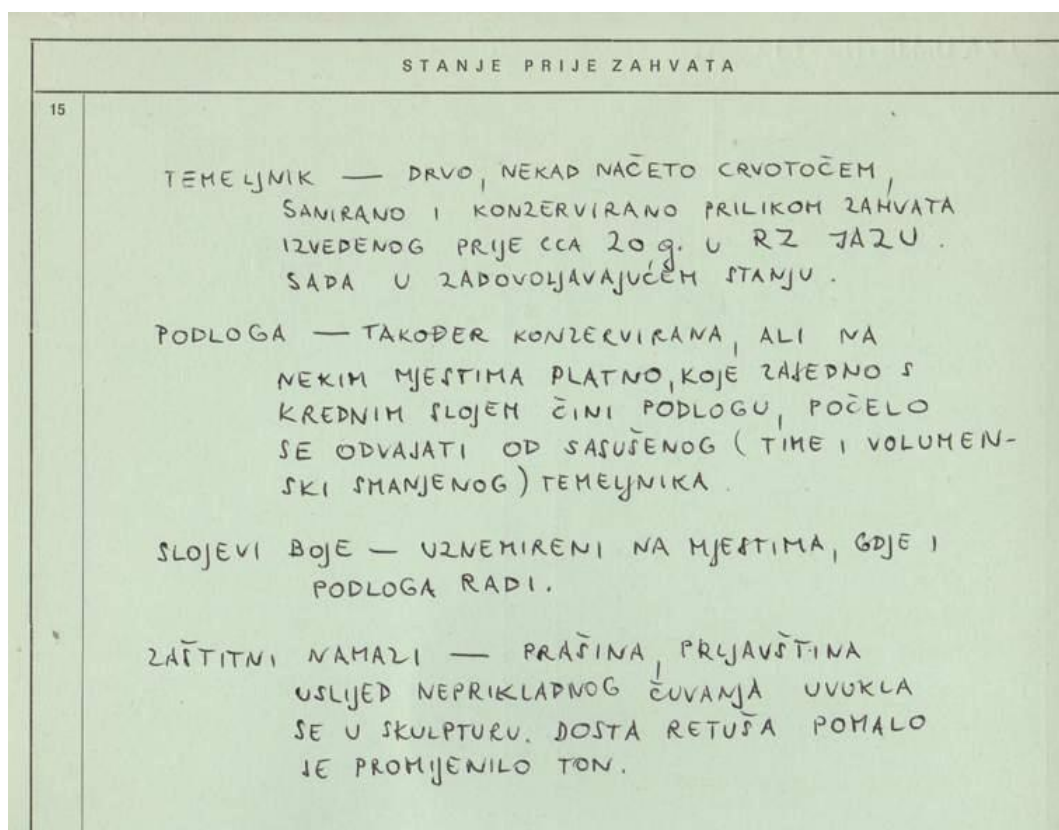 STANJE PRIJE ZAHVATA
15
TEMELJNIK — DRVO, NEKAD NAČETO CRVOTOČEM,
SANIRANO I KONZERVIRANO PRILIKOM ZAHVATA
IZVEDENOG PRIJE CCA 20 g. U RZ JAZU.
SADA U ZADOVOLJAVAJUĆEM STANJU.
PODLOGA — TAKOĐER KONZERVIRANA, ALI NA
NEKIM MJESTIMA PLATNO, KOJE ZAJEDNO S
KREDNIM SLOJEM ČINI PODLOGU, POČELO
SE ODVAJATI OD SASUŠENOG (TIME I VOLUMEN-
SKI SMANJENOG) TEMELJNIKA.
SLOJEVI BOJE — UZNEMIRENI NA MJESTIMA, GDJE I
PODLOGA RADI.
ZAŠTITNI NAMAZI — PRAŠINA, PRLJAVŠTINA
USLIJED NEPRIKLADNOG ČUVANJA UVUKLA
SE U SKULPTURU. DOSTA RETUŠA POMALO
JE PROMIJENILO TON.